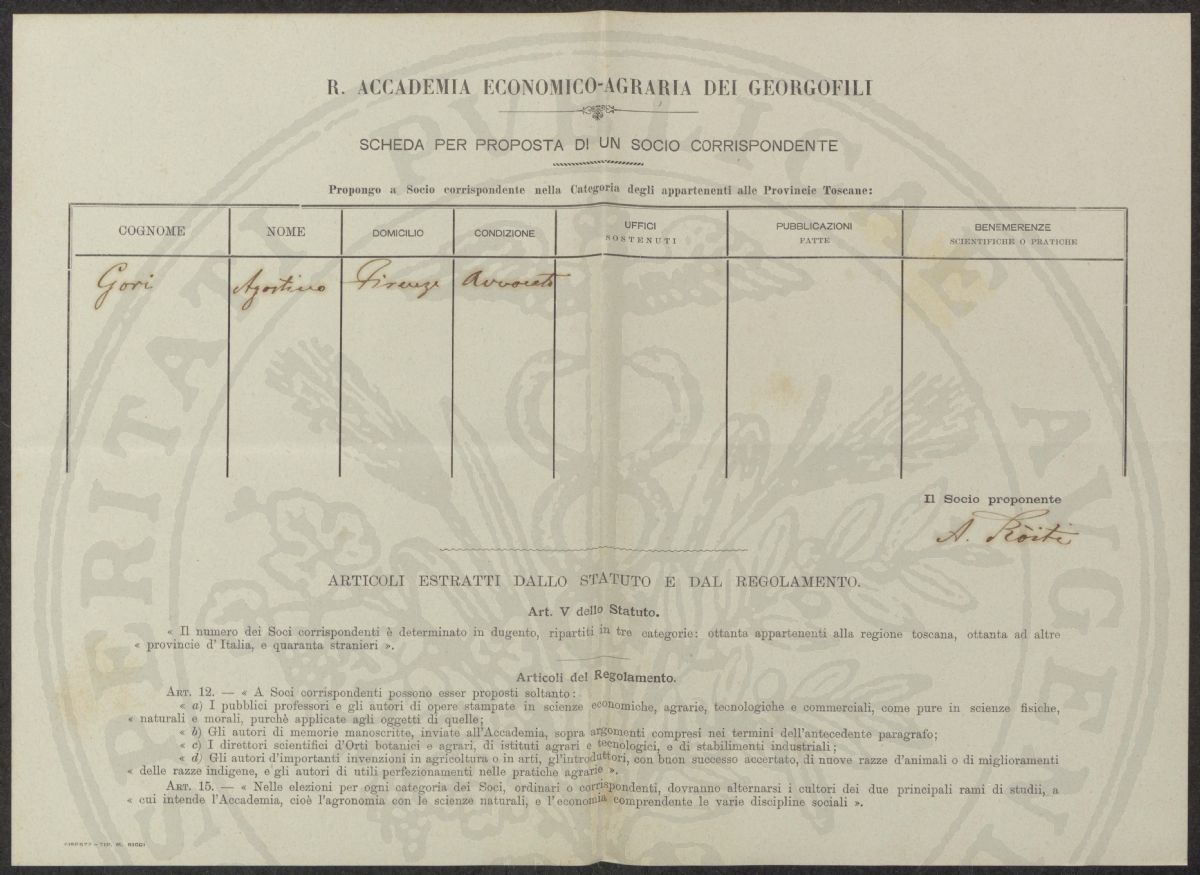 R. ACCADEMIA ECONOMICO-AGRARIA DEI GEORGOFILI
SCHEDA PER PROPOSTA DI UN SOCIO CORRISPONDENTE
Propongo a Socio corrispondente nella Categoria degli appartenenti alle Provincie Toscane:
COGNOME NOME DOMICILIO CONDIZIONE UFFICI SOSTENUTI PUBBLICAZIONI FATTE BENEMERENZE SCIENTIFICHE O PRATICHE
Gori Agostino Firenze Avvocato
Il Socio proponente
A. Ròiti
ARTICOLI ESTRATTI DALLO STATUTO E DAL REGOLAMENTO.
Art. V dello Statuto.
« Il numero dei Soci corrispondenti è determinato in dugento, ripartiti in tre categorie: ottanta appartenenti alla regione toscana, ottanta ad altre
« provincie d'Italia, e quaranta stranieri ».
Articoli del Regolamento.
ART. 12. — « A Soci corrispondenti possono esser proposti soltanto:
« a) I pubblici professori e gli autori di opere stampate in scienze economiche, agrarie, tecnologiche e commerciali, come pure in scienze fisiche,
« naturali e morali, purchè applicate agli oggetti di quelle;
« b) Gli autori di memorie manoscritte, inviate all'Accademia, sopra argomenti compresi nei termini dell'antecedente paragrafo;
« c) I direttori scientifici d'Orti botanici e agrari, di istituti agrari e tecnologici, e di stabilimenti industriali;
« d) Gli autori d'importanti invenzioni in agricoltura o in arti, gl'introduttori, con buon successo accertato, di nuove razze d'animali o di miglioramenti
« delle razze indigene, e gli autori di utili perfezionamenti nelle pratiche agrarie ».
ART. 15. — « Nelle elezioni per ogni categoria dei Soci, ordinari o corrispondenti, dovranno alternarsi i cultori dei due principali rami di studii, a
« cui intende l'Accademia, cioè l'agronomia con le scienze naturali, e l'economia comprendente le varie discipline sociali ».
FIRENZE — TIP. M. RICCI
PROSPERITATI PUBLICAE AVGENDAE